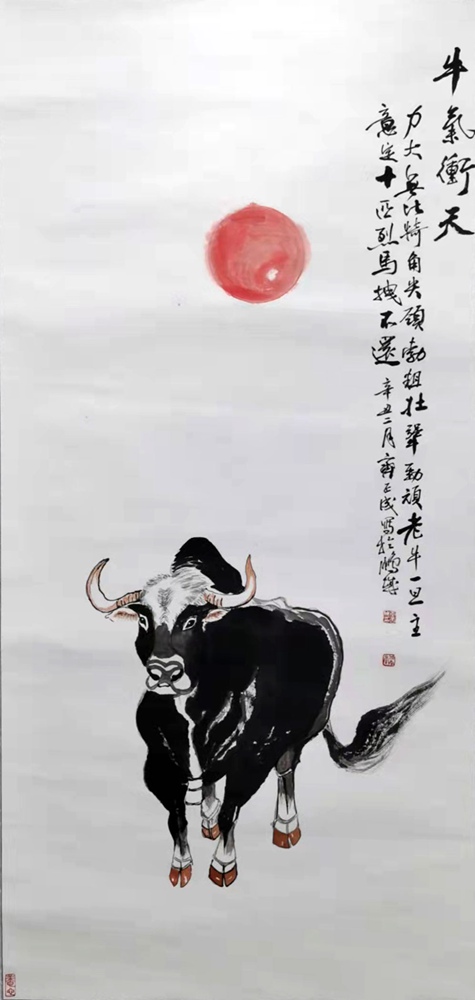 牛氣衝天
力大無比犄角尖頸勃粗壮犟勁頑老牛一旦主
意定十匹烈馬拽不還 辛丑二月齊正成寫於鵬